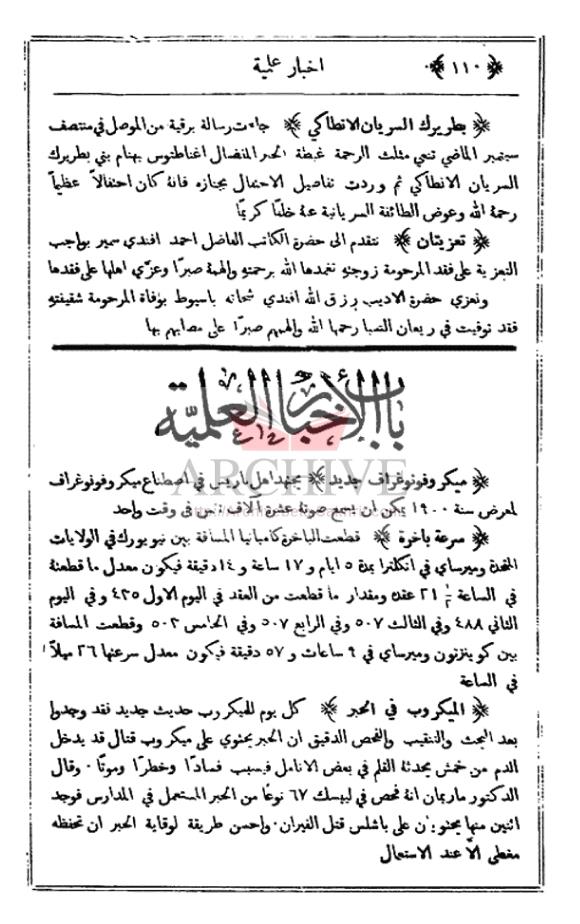 ﴿ ١١٠ ﴾ اخبار علمية
﴿ بطريرك السريان الانطاكي ﴾ جاءت رسالة برقية من الموصل في منتصف
سبتمبر الماضي تنعي مثلث الرحمة غبطة الحبر المفضال اغناطنوس بهنام بني بطريرك
السريان الانطاكي ثم وردت تفاصيل الاحتفال بجنازه فانهُ كان احتفالاً عظيماً
رحمهُ الله وعوض الطائفة السريانية عنهُ خلفًا كريمًا
﴿ تعزيتان ﴾ نتقدم الى حضرة الكاتب الفاضل احمد افندي سمير بواجب
التعزية على فقد المرحومة زوجتهِ تغمدها الله برحمتهِ والهمهُ صبرًا وعزّى اهلها على فقدها
ونعزي حضرة الاديب رزق الله افندي شحاته باسيوط بوفاة المرحومة شقيقتهِ
فقد توفيت في ريعان الصبا رحمها الله والهمهم صبرًا على مصابهم بها
باب الأخبار العلميّة
ARCHIVE
﴿ ميكروفونوغراف جديد ﴾ يجتهد اهل باريس في اصطناع ميكروفونوغراف
لمعرض سنة ١٩٠٠ يمكن ان يسمع صوتهُ عشرة آلاف نفس في وقت واحد
﴿ سرعة باخرة ﴾ قطعت الباخرة كامبانيا المسافة بين نيويورك في الولايات
المتحدة وميرساي في انكلترا بمدة ٥ ايام و ١٧ ساعة و ١٤ دقيقة فيكون معدل ما قطعتهُ
في الساعة ٢١ عقدة ومقدار ما قطعت من العقد في اليوم الاول ٤٣٥ وفي اليوم
الثاني ٤٨٨ وفي الثالث ٥٠٧ وفي الرابع ٥٠٧ وفي الخامس ٥٠٣ وقطعت المسافة
بين كوينزتون وميرساي في ٩ ساعات و ٥٧ دقيقة فيكون معدل سرعتها ٢٦ ميلاً
في الساعة
﴿ الميكروب في الحبر ﴾ كل يوم للميكروب حديث جديد فقد وجدوا
بعد البحث والتنقيب والفحص الدقيق ان الحبر يحتوي على ميكروب قتال قد يدخل
الدم من خمش يحدثهُ القلم في بعض الانامل فيسبب فسادًا وخطرًا وموتًا . وقال
الدكتور ماربمان انهُ فحص في ليبسك ٦٧ نوعًا من الحبر المستعمل في المدارس فوجد
اثنين منها يحتويان على باشلس قتل الفيران . واحسن طريقة لوقاية الحبر ان تحفظه
مغطى الاّ عند الاستعمال